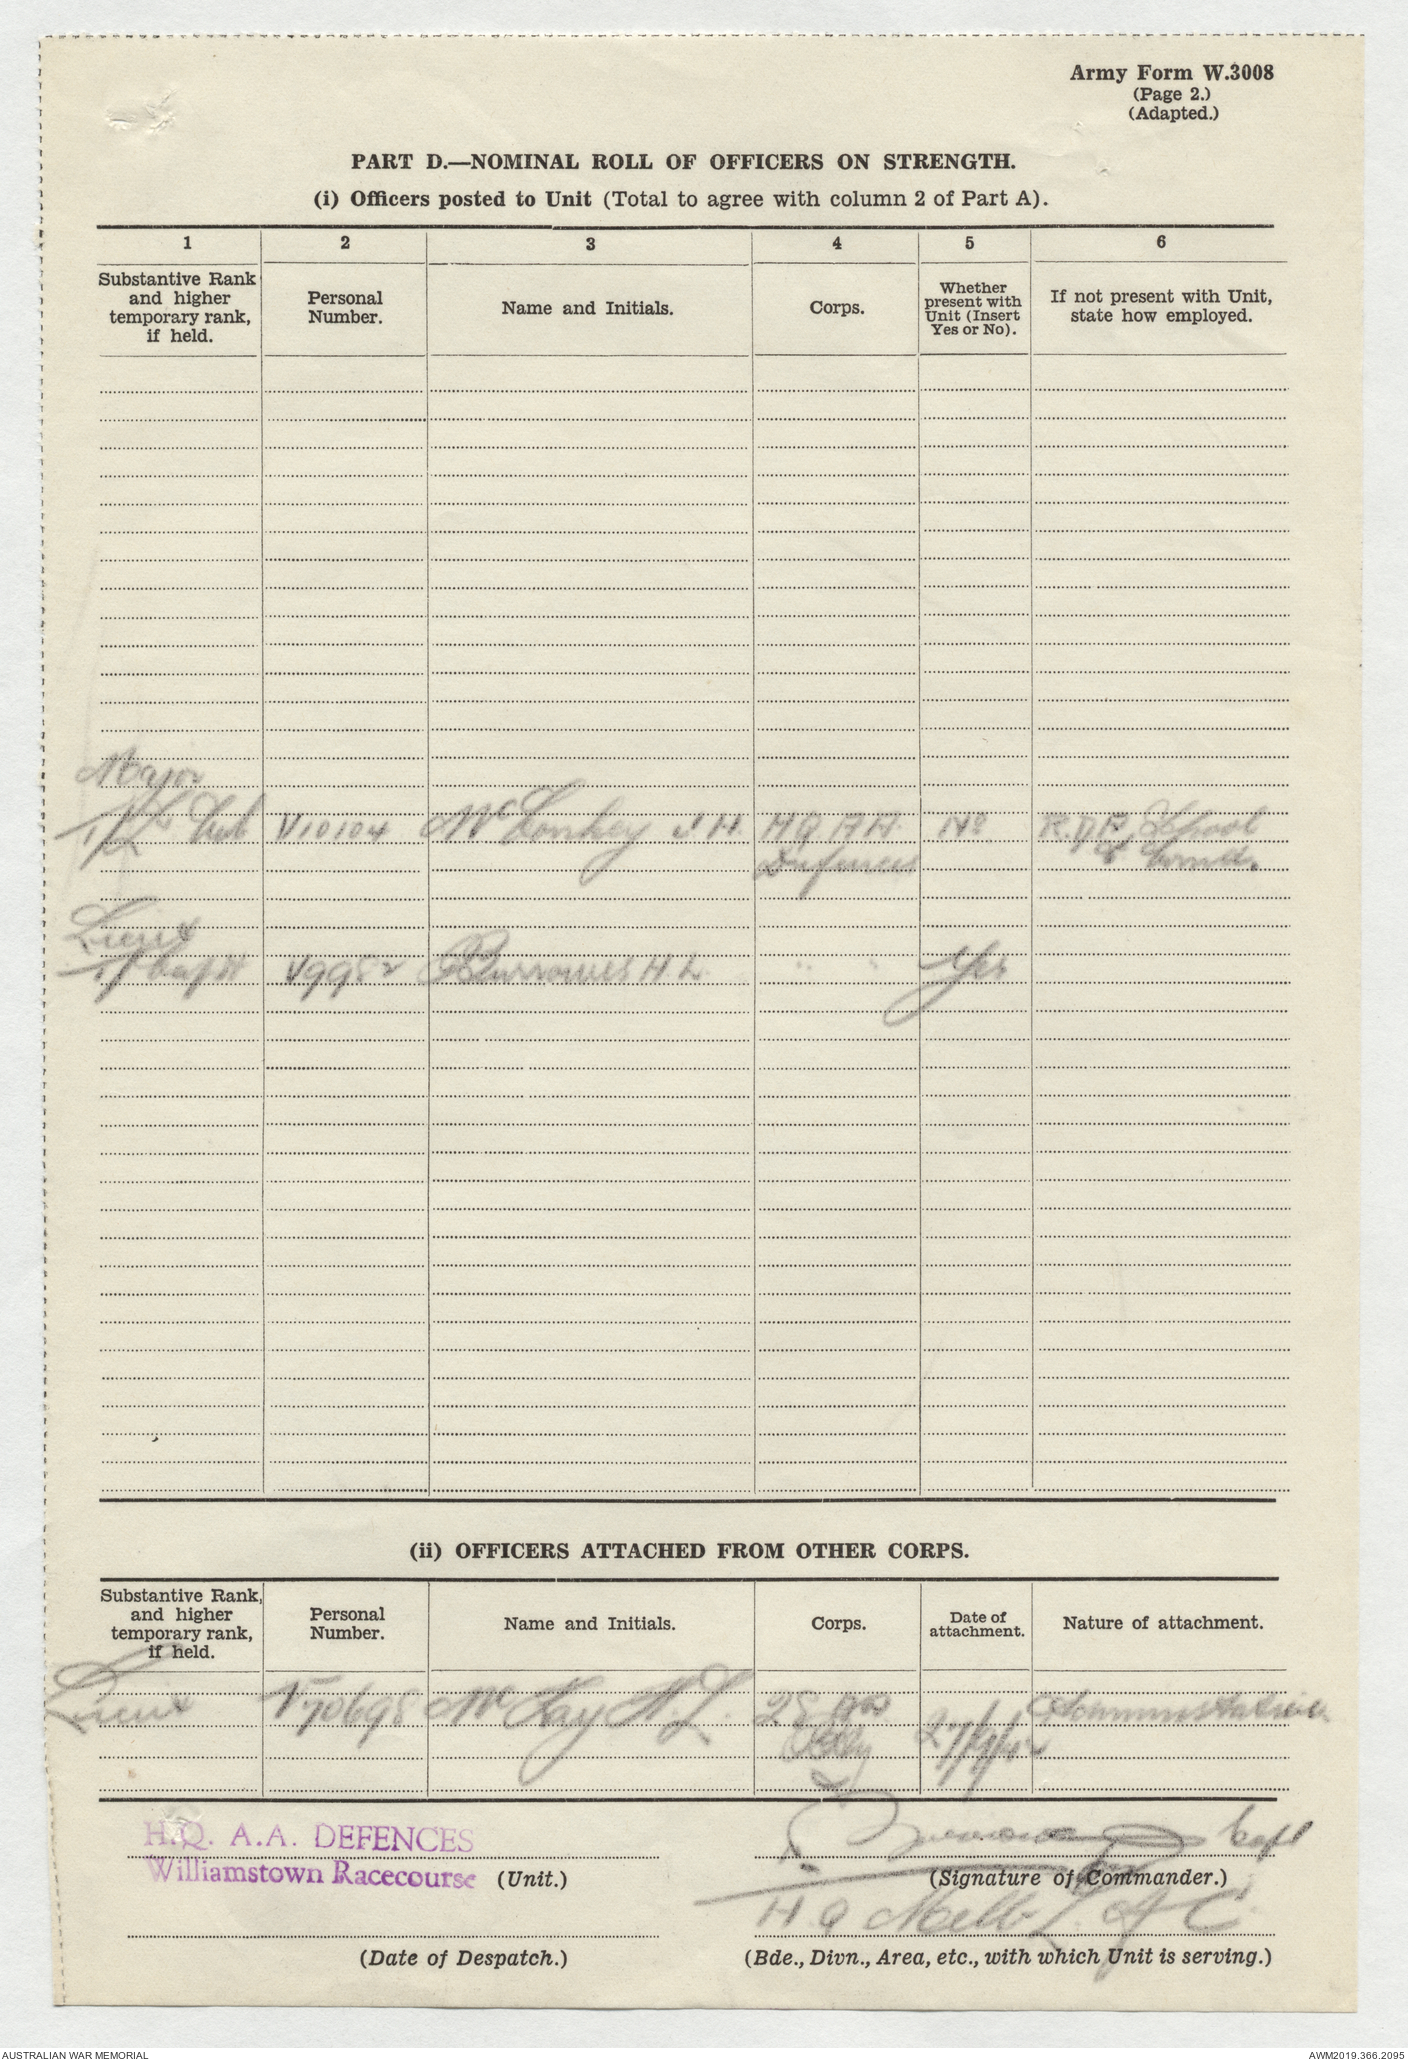 Army Form W.3008
(Page 2.)
(Adapted.)
PART D.—NOMINAL ROLL OF OFFICERS ON STRENGTH.
(i) Officers posted to Unit (Total to agree with column 2 of Part A).
1 2 3 4 5 6
Substantive Rank and higher temporary rank, if held.
Personal Number.
Name and Initials.
Corps.
Whether present with Unit (Insert Yes or No).
If not present with Unit, state how employed.
Major
V10104 McConkey J H. HQ A A. No School
Defences
Lieut
T/Capt V9952 Burrowes H L. " " Yes
(ii) OFFICERS ATTACHED FROM OTHER CORPS.
Substantive Rank, and higher temporary rank, if held.
Personal Number.
Name and Initials.
Corps.
Date of attachment.
Nature of attachment.
Lieut V70698 McKay N.L. 28 Administrative
27/9/42
H.Q. A.A. DEFENCES
Williamstown Racecourse (Unit.)
Capt
(Signature of Commander.)
H Q Melb L of C
(Date of Despatch.)
(Bde., Divn., Area, etc., with which Unit is serving.)
AUSTRALIAN WAR MEMORIAL
AWM2019.366.2095